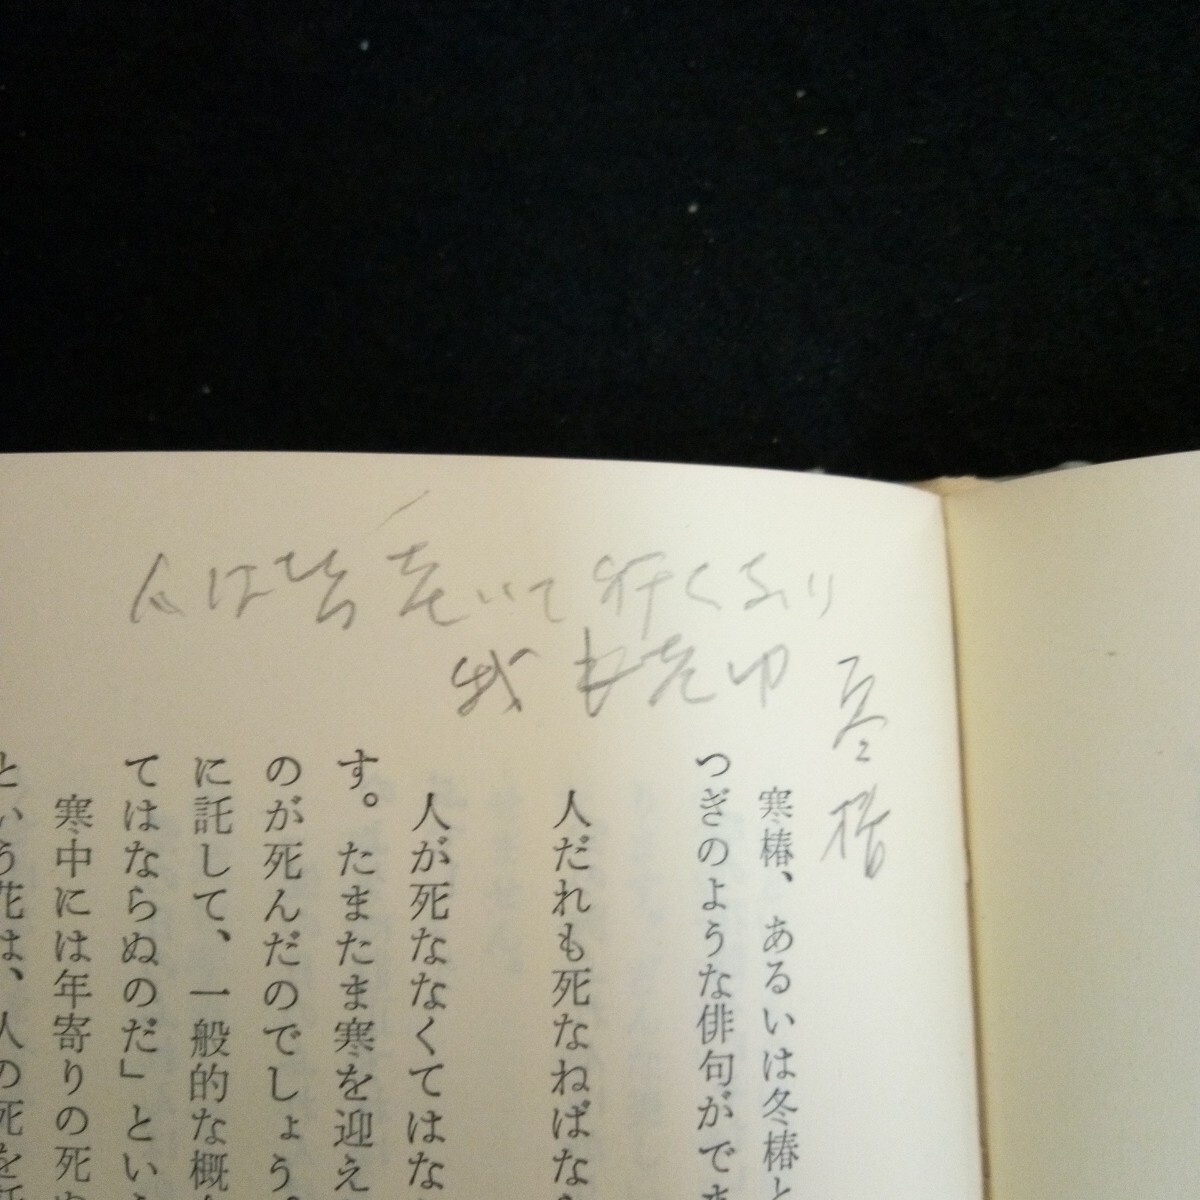 人は皆老いて行くなり
我も老ゆ
寒椿
寒椿、あるいは冬椿と
つぎのような俳句がでま
人だれも死なねばな
人が死ななくてはな
す。たまたま寒を迎え
のが死んだのでしょう。
に託して、一般的な概
てはならぬのだ」とい
寒中には年寄りの死
という花は、人の死を